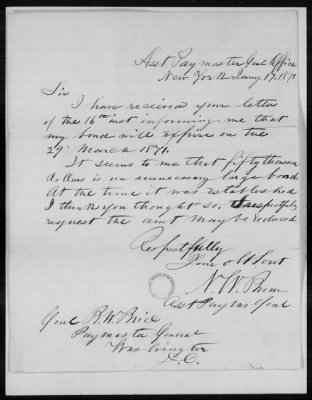 Asst Paymaster Genl Office
New York Jany 17. 1871
Sir
I have received your letter
of the 16th inst informing me that
my bond will expire on the
29' March 1871.
It seems to me that fifty thousand
dollars is an unnecessary large bond
At the time it was established
I think you thought so, I respectfully
request the amt may be reduced
Respectfully
Your o b Svnt
N. W. Brown
Asst Paymas Genl
Genl B. W. Brice
Paymaster General
Washington
D.C.